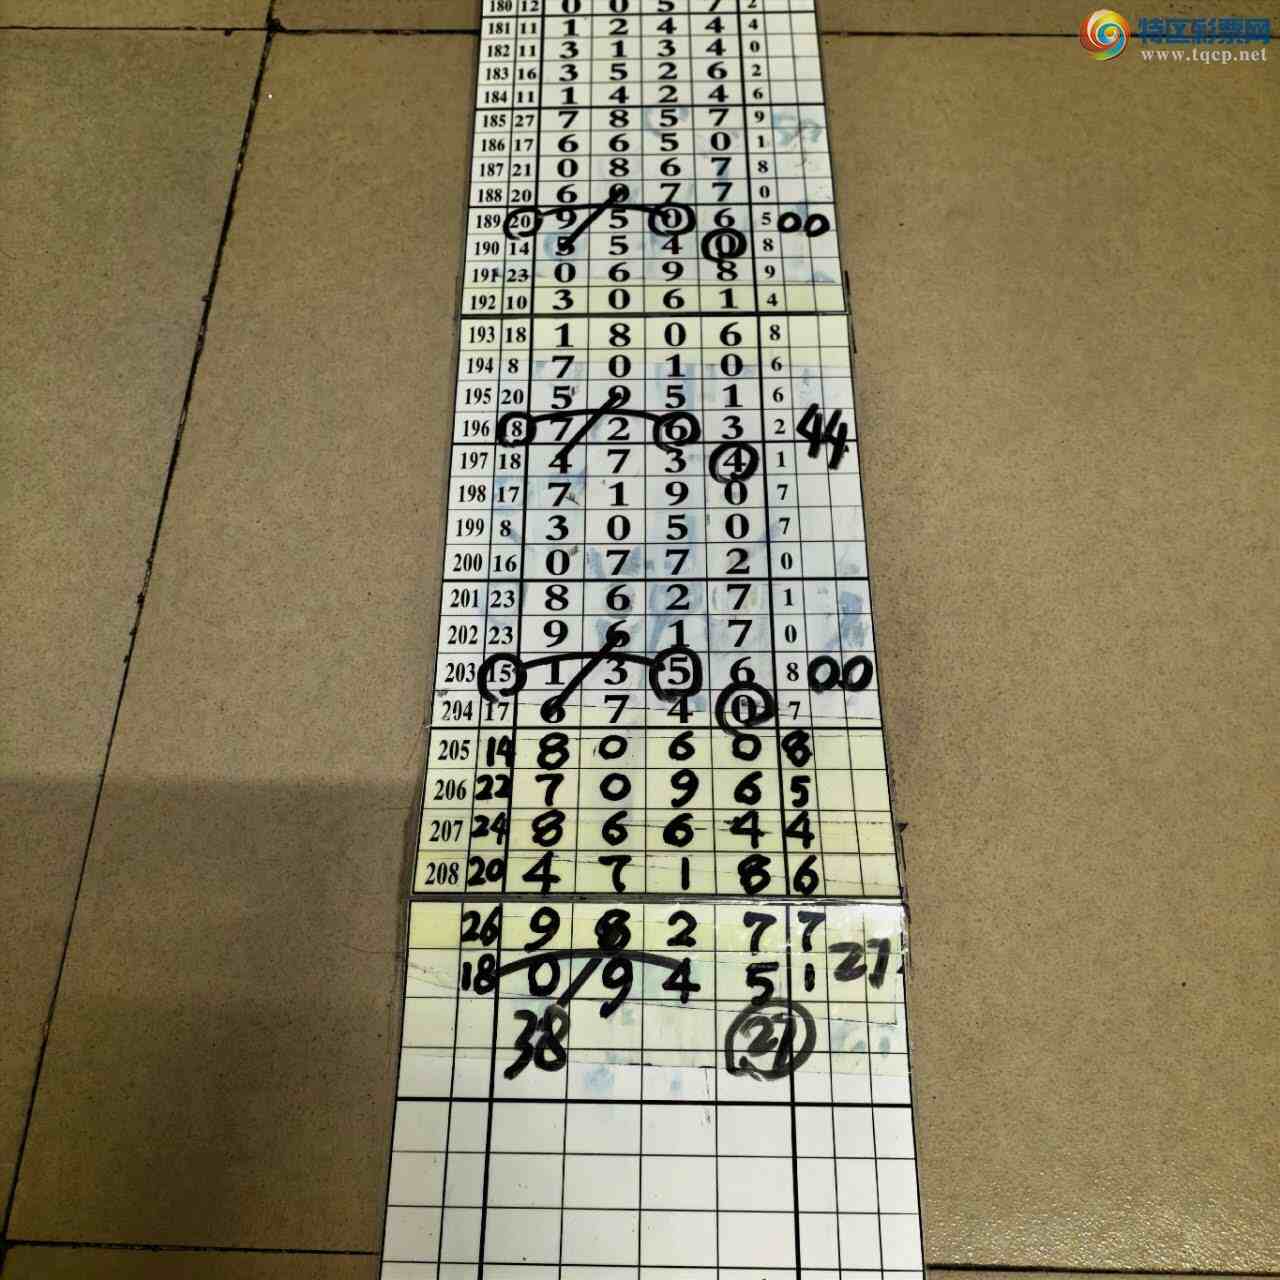 特区彩票网
www.tqcp.net
180 12 0 0 5 7 2
181 11 1 2 4 4 4
182 11 3 1 3 4 0
183 16 3 5 2 6 2
184 11 1 4 2 4 6
185 27 7 8 5 7 9
186 17 6 6 5 0 1
187 21 0 8 6 7 8
188 20 6 0 7 7 0
189 20 9 5 0 6 5 00
190 14 5 5 4 0 8
191 23 0 6 9 8 9
192 10 3 0 6 1 4
193 18 1 8 0 6 8
194 8 7 0 1 0 6
195 20 5 9 5 1 6
196 18 7 2 6 3 2 44
197 18 4 7 3 4 1
198 17 7 1 9 0 7
199 8 3 0 5 0 7
200 16 0 7 7 2 0
201 23 8 6 2 7 1
202 23 9 6 1 7 0
203 15 1 3 5 6 8 00
204 17 6 7 4 0 7
205 14 8 0 6 0 8
206 22 7 0 9 6 5
207 24 8 6 6 4 4
208 20 4 7 1 8 6
26 9 8 2 7 7
18 0 9 4 5 1 27
38 27